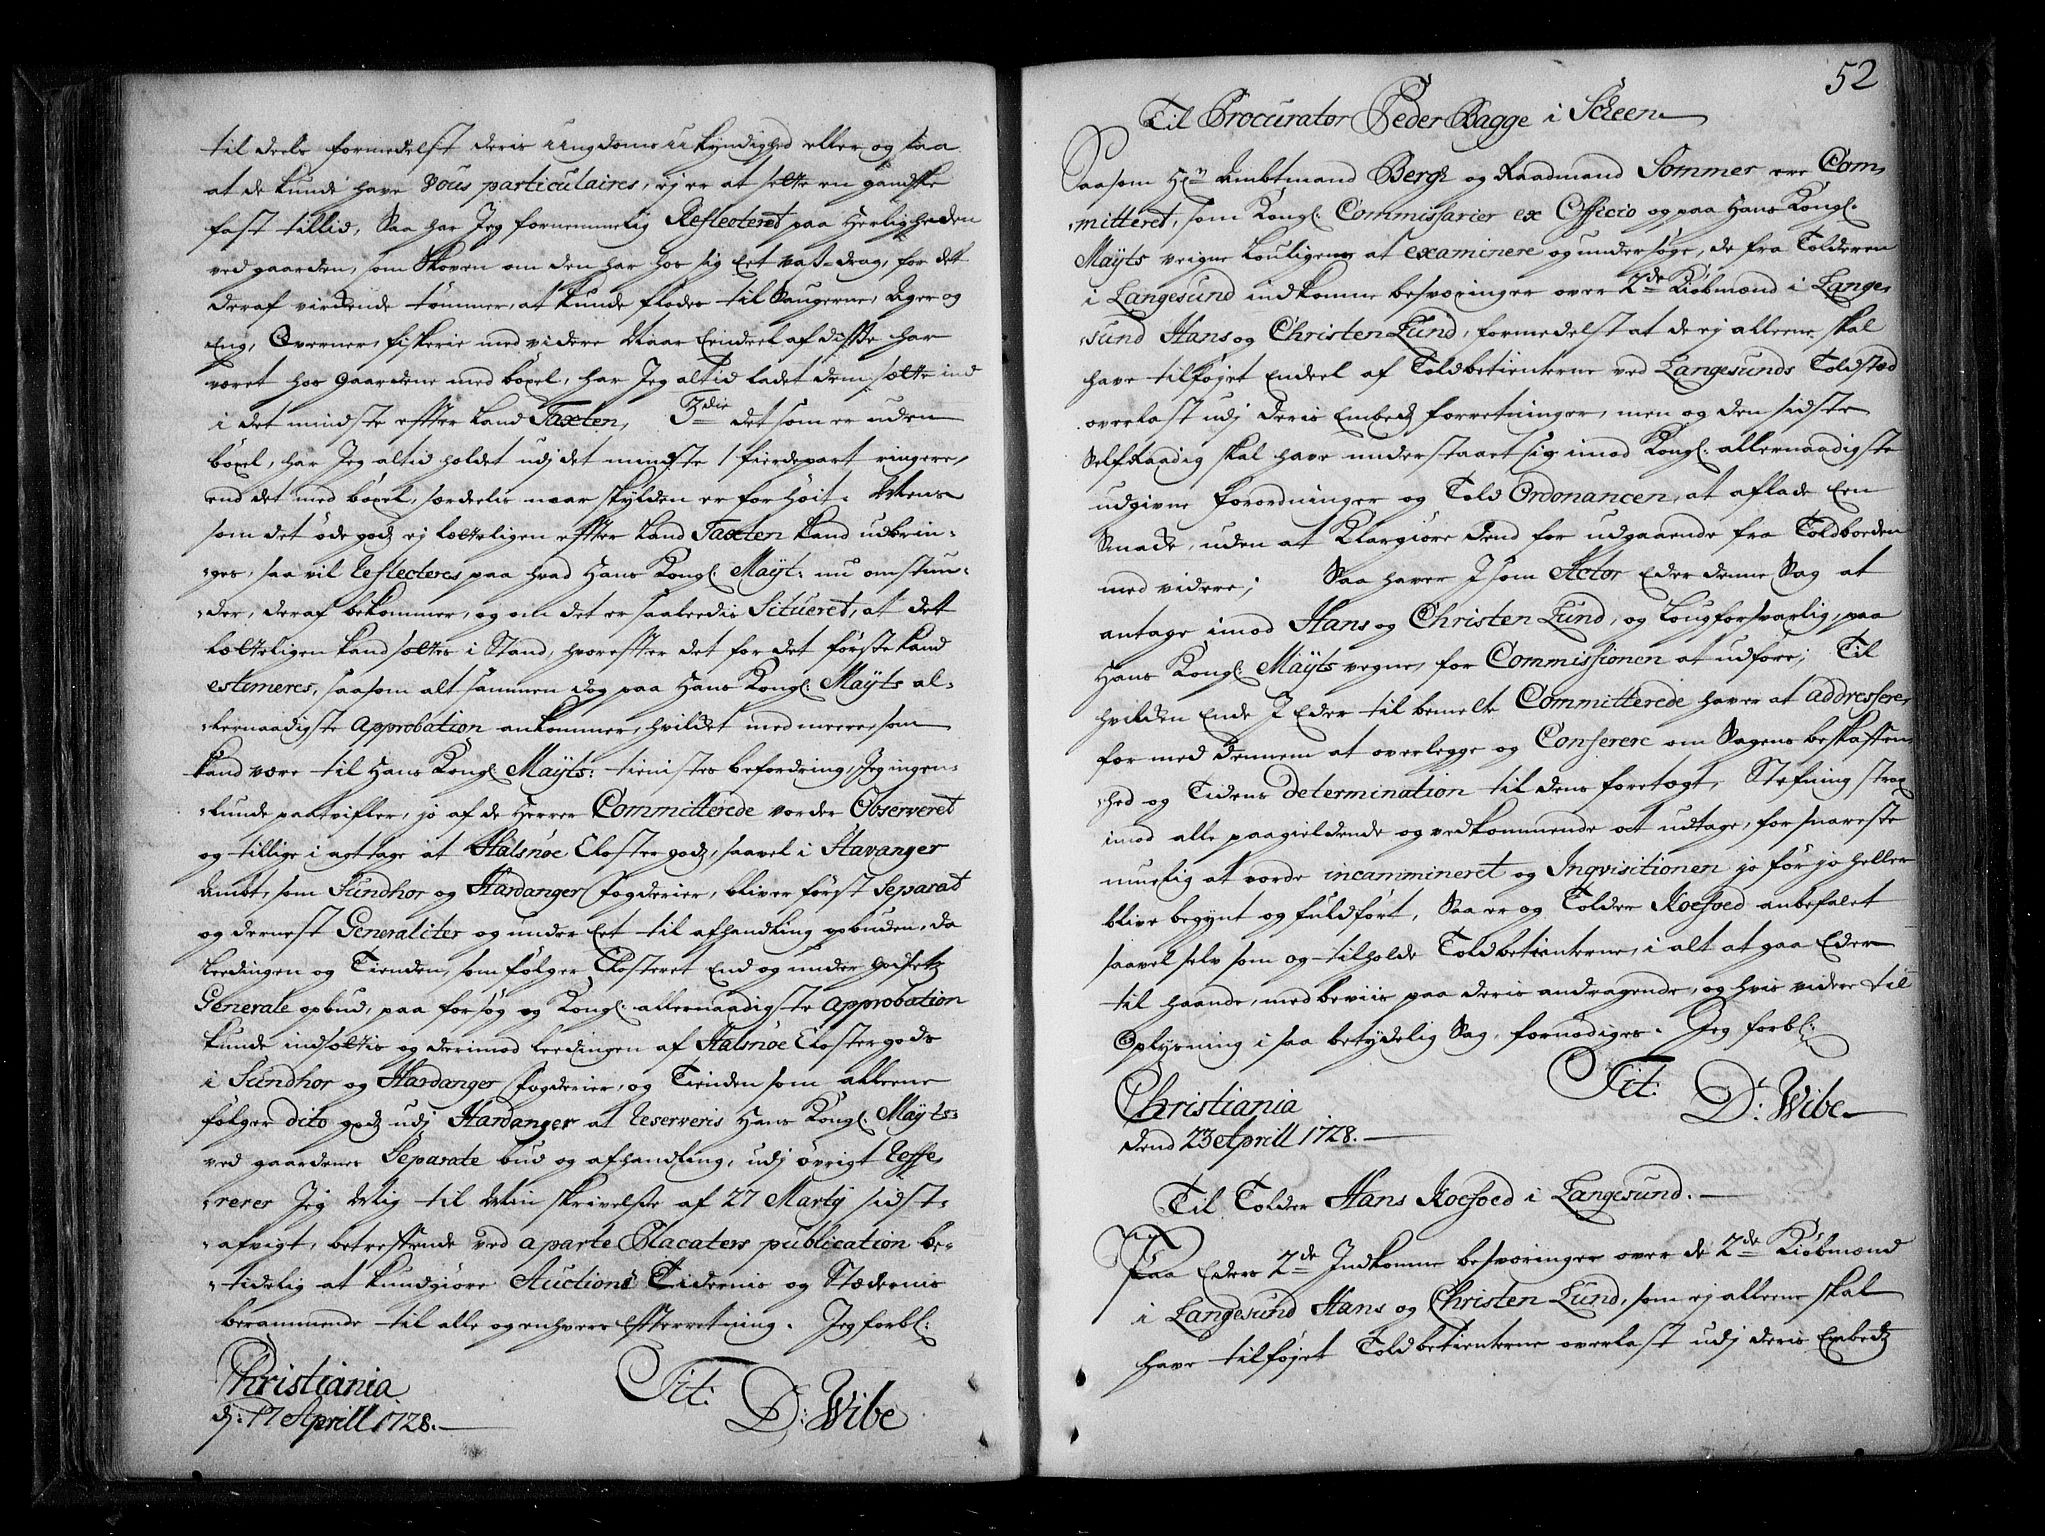 til deels formedelst deris ungdoms ukyndighed eller og saa
at de kunde have Vous particulaires, ej er at sette en gandske
fast tillid, Saa har Jeg fornemmelig Reflecteret paa Herligheden
ved gaarden, som Skoven om den har hos sig Eet vas-drag, for det
deraf virckende tømmer, at kunde flødes til Saugerne, Ager og
Eng, Qverner, fiskerie med videre Naar Eendeel af disse har
været hos gaardene med böxel, har Jeg altid ladet dem sætte ind
i det mindste effter Land Taxten, 3die det som er uden
böxel, har Jeg altid holdet udj det mindste 1 fierdepart ringere,
end det med böxel, særdeelis naar skylden er for høit. Mens
som det øde godz ej lætteligen effter Land Taxten kand udbrin-
-ges, saa vil Reflecteres paa hvad Hans Kongl: Mayt: nu omstun-
-der, deraf bekommer, og om det er saaleedis Situeret, at det
lætteligen kand sættes i Stand, hvoreffter det for det første kand
estimeres, saasom alt sammen dog paa Hans Kongl: Mayts al-
-lernaadigste Approbation ankommer, hvilcket med meere som
kand være til Hans Kongl: Mayts: tienistes befordring, Jeg ingen-
-lunde paatvifler, jo af de Herrer Committerede vorder Observeret
og tillige i agt tage at Halsnøe Closter godz, saavel i Stavanger
Ambt, som Sundhor og Hardanger Fogderier, bliver først Separat
og dernest Generaliter og under Eet til afhandling opbuden, da
Leedingen og Tienden, som følger Closteret End og under godsetz
Generale opbud, paa forsøg og Kongl: allernaadigste Approbation
kunde indsættis og derimod Leedingen af Halsnøe Closter gods
i Sundhor og Hardanger Fogderier, og Tienden som alleene
følger dito godz udj Hardanger at Reserveris Hans Kongl: Mayts:
ved gaardenes Separate bud og afhandling, udj øvrigt Reffe-
-rerer Jeg Mig til Min skrivelse af 27 Martij sidst-
-afvigt, betreffende ved aparte Placaters publication be-
-tidelig at kundgiøre Auctions Tidernis og Stædernis
berammende til alle og enhvers Effterretning. Jeg forbl:
Christiania
d: 17 Aprill 1728.
Tit:
D: Wibe
52
Til Procurator Peder Bagge i Scheen
Saasom Hr Ambtmand Bergh og Raadmand Sommer ere Com-
-mitteret, som Kongl: Commissarier ex Officio og paa Hans Kongl:
Mayts veigne Louligen at examinere og undersøge, de fra Tolderen
i Langesund indkomne besværinger over 2de Kiøbmænd i Lange-
-sund Hans og Christen Lund, formedelst at de ej alleene skal
have tilføjet Endeel af Toldbetienterne ved Langesunds Toldsted
overlast udj deris Embedz forretninger, men og den sidste
Selfraadig skal have understaaet sig imod Kongl: allernaadigste
udgivne forordninger og Told Ordonancen, at aflade Een
Smacke, uden at Klargiøre dend for udgaaende fra Toldboeden
med videre; Saa haver I som Actor Eder denne Sag at
antage imod Hans og Christen Lund, og Lougforsvarlig, paa
Hans Kongl: Mayts vegne, for Commissionen at udføre; Til
hvilcken Ende I Eder til bemelte Committerede haver at addressere,
for med dennem at overlegge og Conferere om Sagens beskaffen-
-hed og Tidens determination til dens foretagt, Stefning strax
imod alle paagieldende og vedkommende at udtage, for snareste
muelig at vorde incammineret og Inqvisitionen jo før jo heller
blive begynt og fuldført, Saa er og Tolder Roesoed anbefalet
saavel selv som og tilholde Toldbetienterne, i alt at gaa Eder
til haande, med beviis paa deris andragende, og hvis videre til
Oplysning i saa betydelig Sag, fornødiges. Jeg forbl:
Christiania
dend 23 Aprill 1728.
Tit:
D: Wibe
Til Tolder Hans Roesoed i Langesund.
Paa Eders 2de Indkomne besværinger over de 2de Kiøbmænd
i Langesund Hans og Christen Lund, som ej alleene skal
have tilføjet Toldbetienterne overlast udj deris Embedz